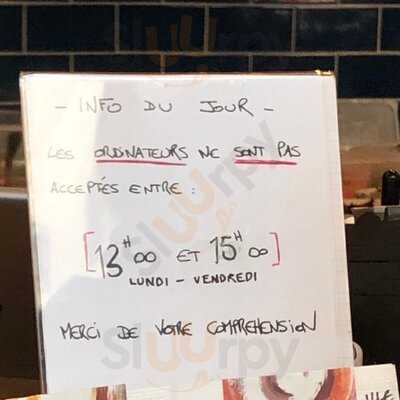 - INFO DU JOUR -
LES ORDINATEURS NE SONT PAS
ACCEPTÉS ENTRE :
[13H00 ET 15H00]
LUNDI - VENDREDI
MERCI DE VOTRE COMPREHENSION
sluurpy
sluurpy
sluurpy